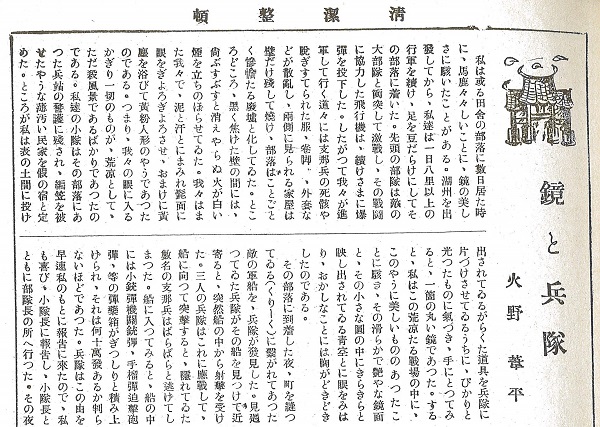 清潔整頓
鏡と兵隊
火野葦平
私は或る田舎の部落に數日居た時
に、馬鹿々々しいことに、鏡の美し
さに駭いたことがある。湖州を出
發してから、私達は一日八里以上の
行軍を續け、足を豆だらけにしてそ
の部落に着いた。先頭の部隊は敵の
大部隊と衝突して激戰し、その戰鬪
に協力した飛行機は、續けさまに爆
彈を投下した。したがつて我々が進
軍して行く道々には支那兵の死骸や
脱ぎすてられた服、卷脚、外套な
どが散亂し、兩側に見られる家屋は
壁だけ殘して燒け、部落はことごと
く慘憺たる廢墟と化してゐた。とこ
ろどころ、黑く焦げた壁の間には、
尚ぶすぶすと消えやらぬ火が白い
煙を立ちのぼらせてゐた。我々はま
た我々で、泥と汗とにまみれ髭面に
眼をぎよろぎよろさせ、おまけに黃
塵を浴びて黃粉人形のやうであつた
のである。つまり、我々の眼に入る
かぎり一切のものが、荒凉として、
ただ殺風景であるばかりであつたの
である。私達の小隊はその部落にあ
つた兵站の警護に殘され、編笠を被
せたやうな薄汚い民家を假の宿と定
めた。ところが私は炎の土間に投げ
出されてゐるがらくた道具を兵隊に
片づけさせてゐるうちに、ぴかりと
光つたものに氣づき、手にとつてみ
ると、一箇の丸い鏡であつた。する
と、私はこの荒凉たる戰場の中に、
このやうに美しいもののあつたこ
とに駭き、その滑らかで艷やな鏡面
と、その小さな圓の中にきらきらと
映し出されてゐる靑空とに眼をみは
り、おかしなことには胸がどきどき
したのである。
その部落に到着した夜、町を縫つ
てゐる(くりーく)に繫がれてあつた
敵の軍船を、兵隊が發見した。見過
つてゐた兵隊がその船を見つけて近
寄ると、突然船の中から射擊を受け
た。三人の兵隊はこれに應戰して、
船に向つて突擊すると、隱れてゐた
數名の支那兵はばらばらと逃げてし
まつた。船に入つてみると、船の中
には小銃彈機關銃彈、手榴彈迫擊砲
彈、等の彈藥箱がぎつしりと積み上
けられ、それは何十萬發あるか判ら
ないほどであつた。兵隊はこの由を
早速私のもとに報吿に來たので、私
も喜び、小隊長に報吿し、小隊長と
ともに部隊長の所へ行つた。その夜